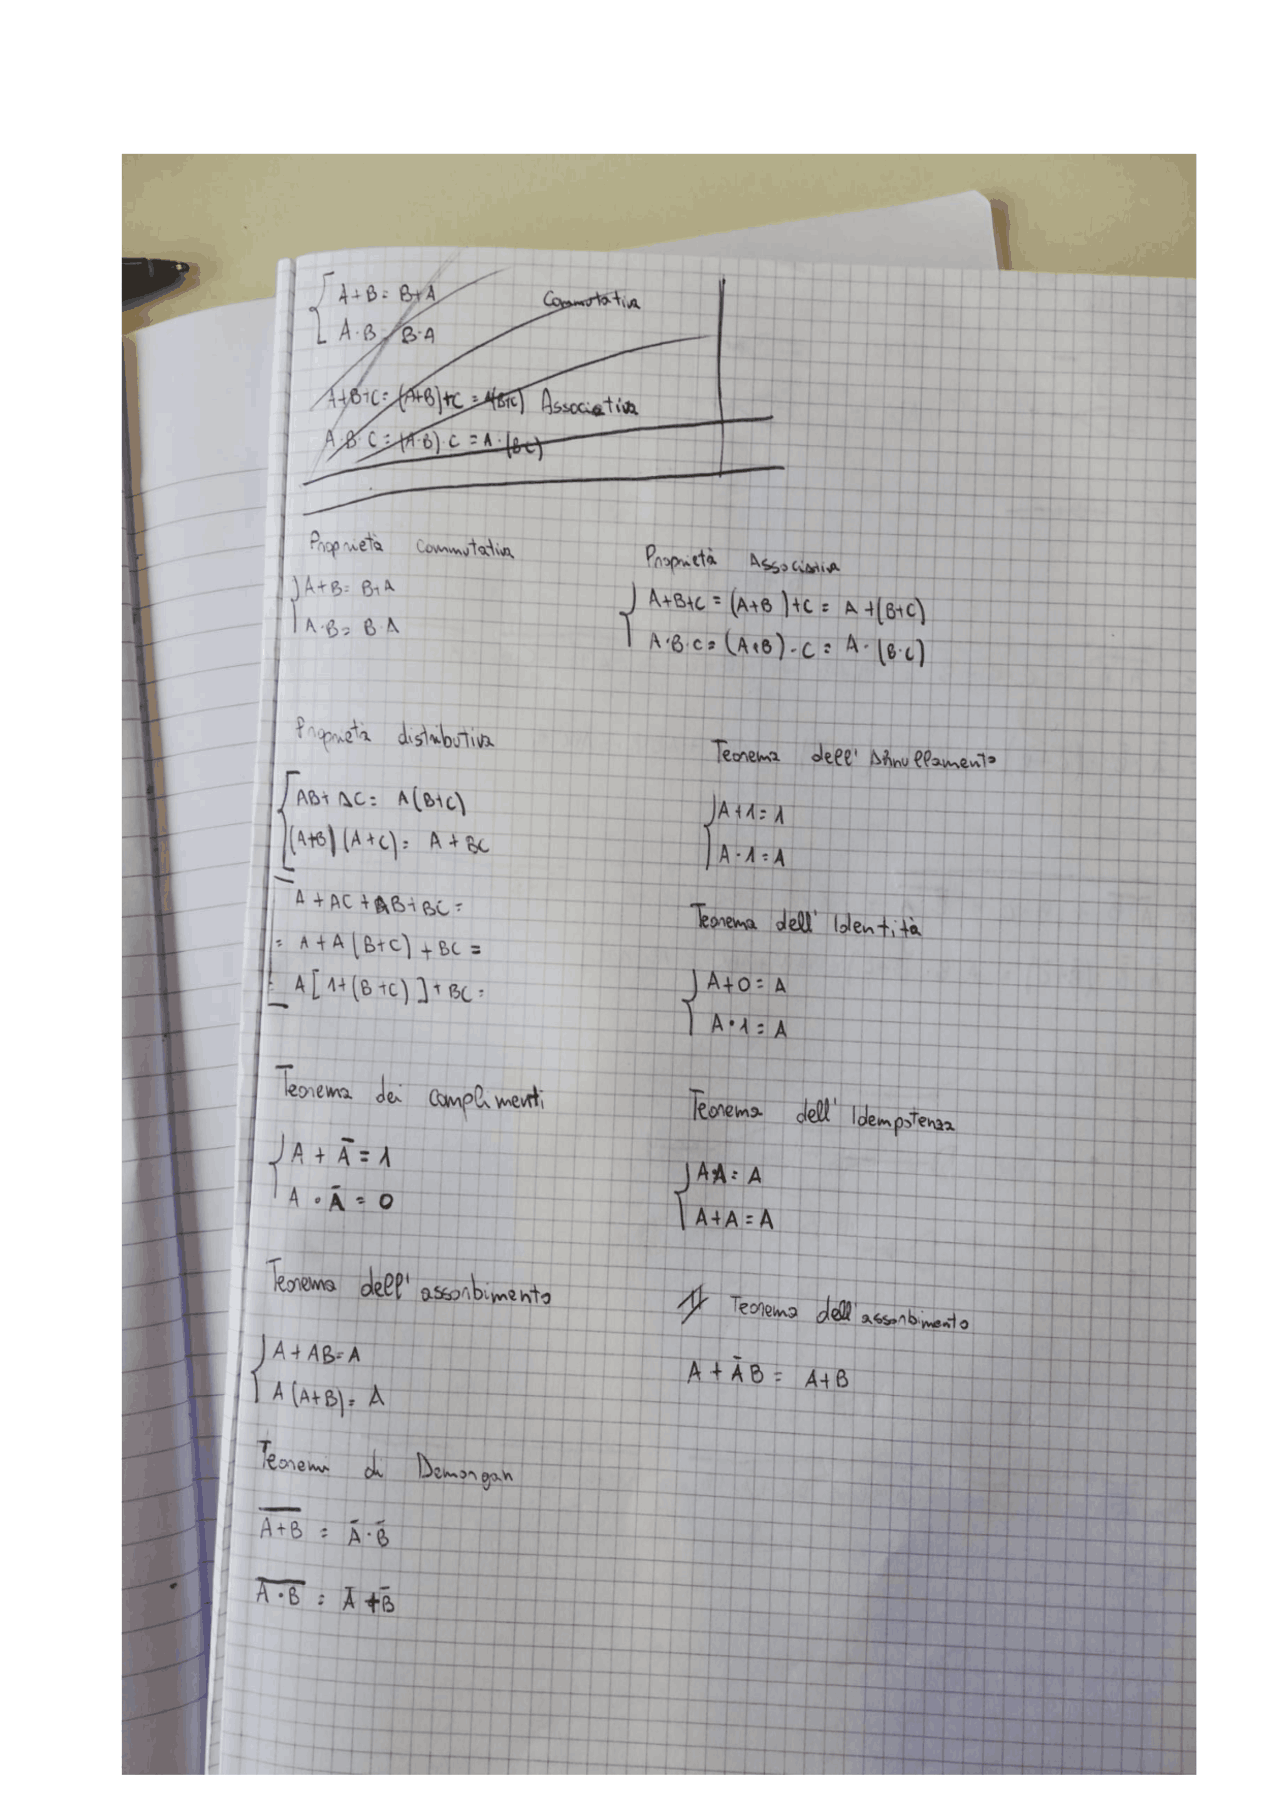 A+B = B+A Commutativa
A·B = B·A
A+B+C = (A+B)+C = A(B+C) Associativa
A·B·C = (A·B)·C = A·(BC)
Proprietà Commutativa
A+B = B+A
A·B = B·A
Proprietà Associativa
A+B+C = (A+B)+C = A+(B+C)
A·B·C = (A·B)·C = A·(B·C)
Proprietà distributiva
AB+AC = A(B+C)
(A+B)(A+C) = A+BC
A+AC+AB+BC =
= A+A(B+C)+BC =
= A[1+(B+C)]+BC =
Teorema dell'Annullamento
A+1=1
A·1=A
Teorema dell'Identità
A+0=A
A·1=A
Teorema dei complimenti
A + Ā = 1
A · Ā = 0
Teorema dell'Idempotenza
A·A = A
A+A = A
Teorema dell'assorbimento
A+AB=A
A(A+B)= A
Teorema dell'assorbimento
A + ĀB = A+B
Teorema di Demorgan
A̅+̅B̅ = Ā·B̄
A̅·̅B̅ = Ā+B̄